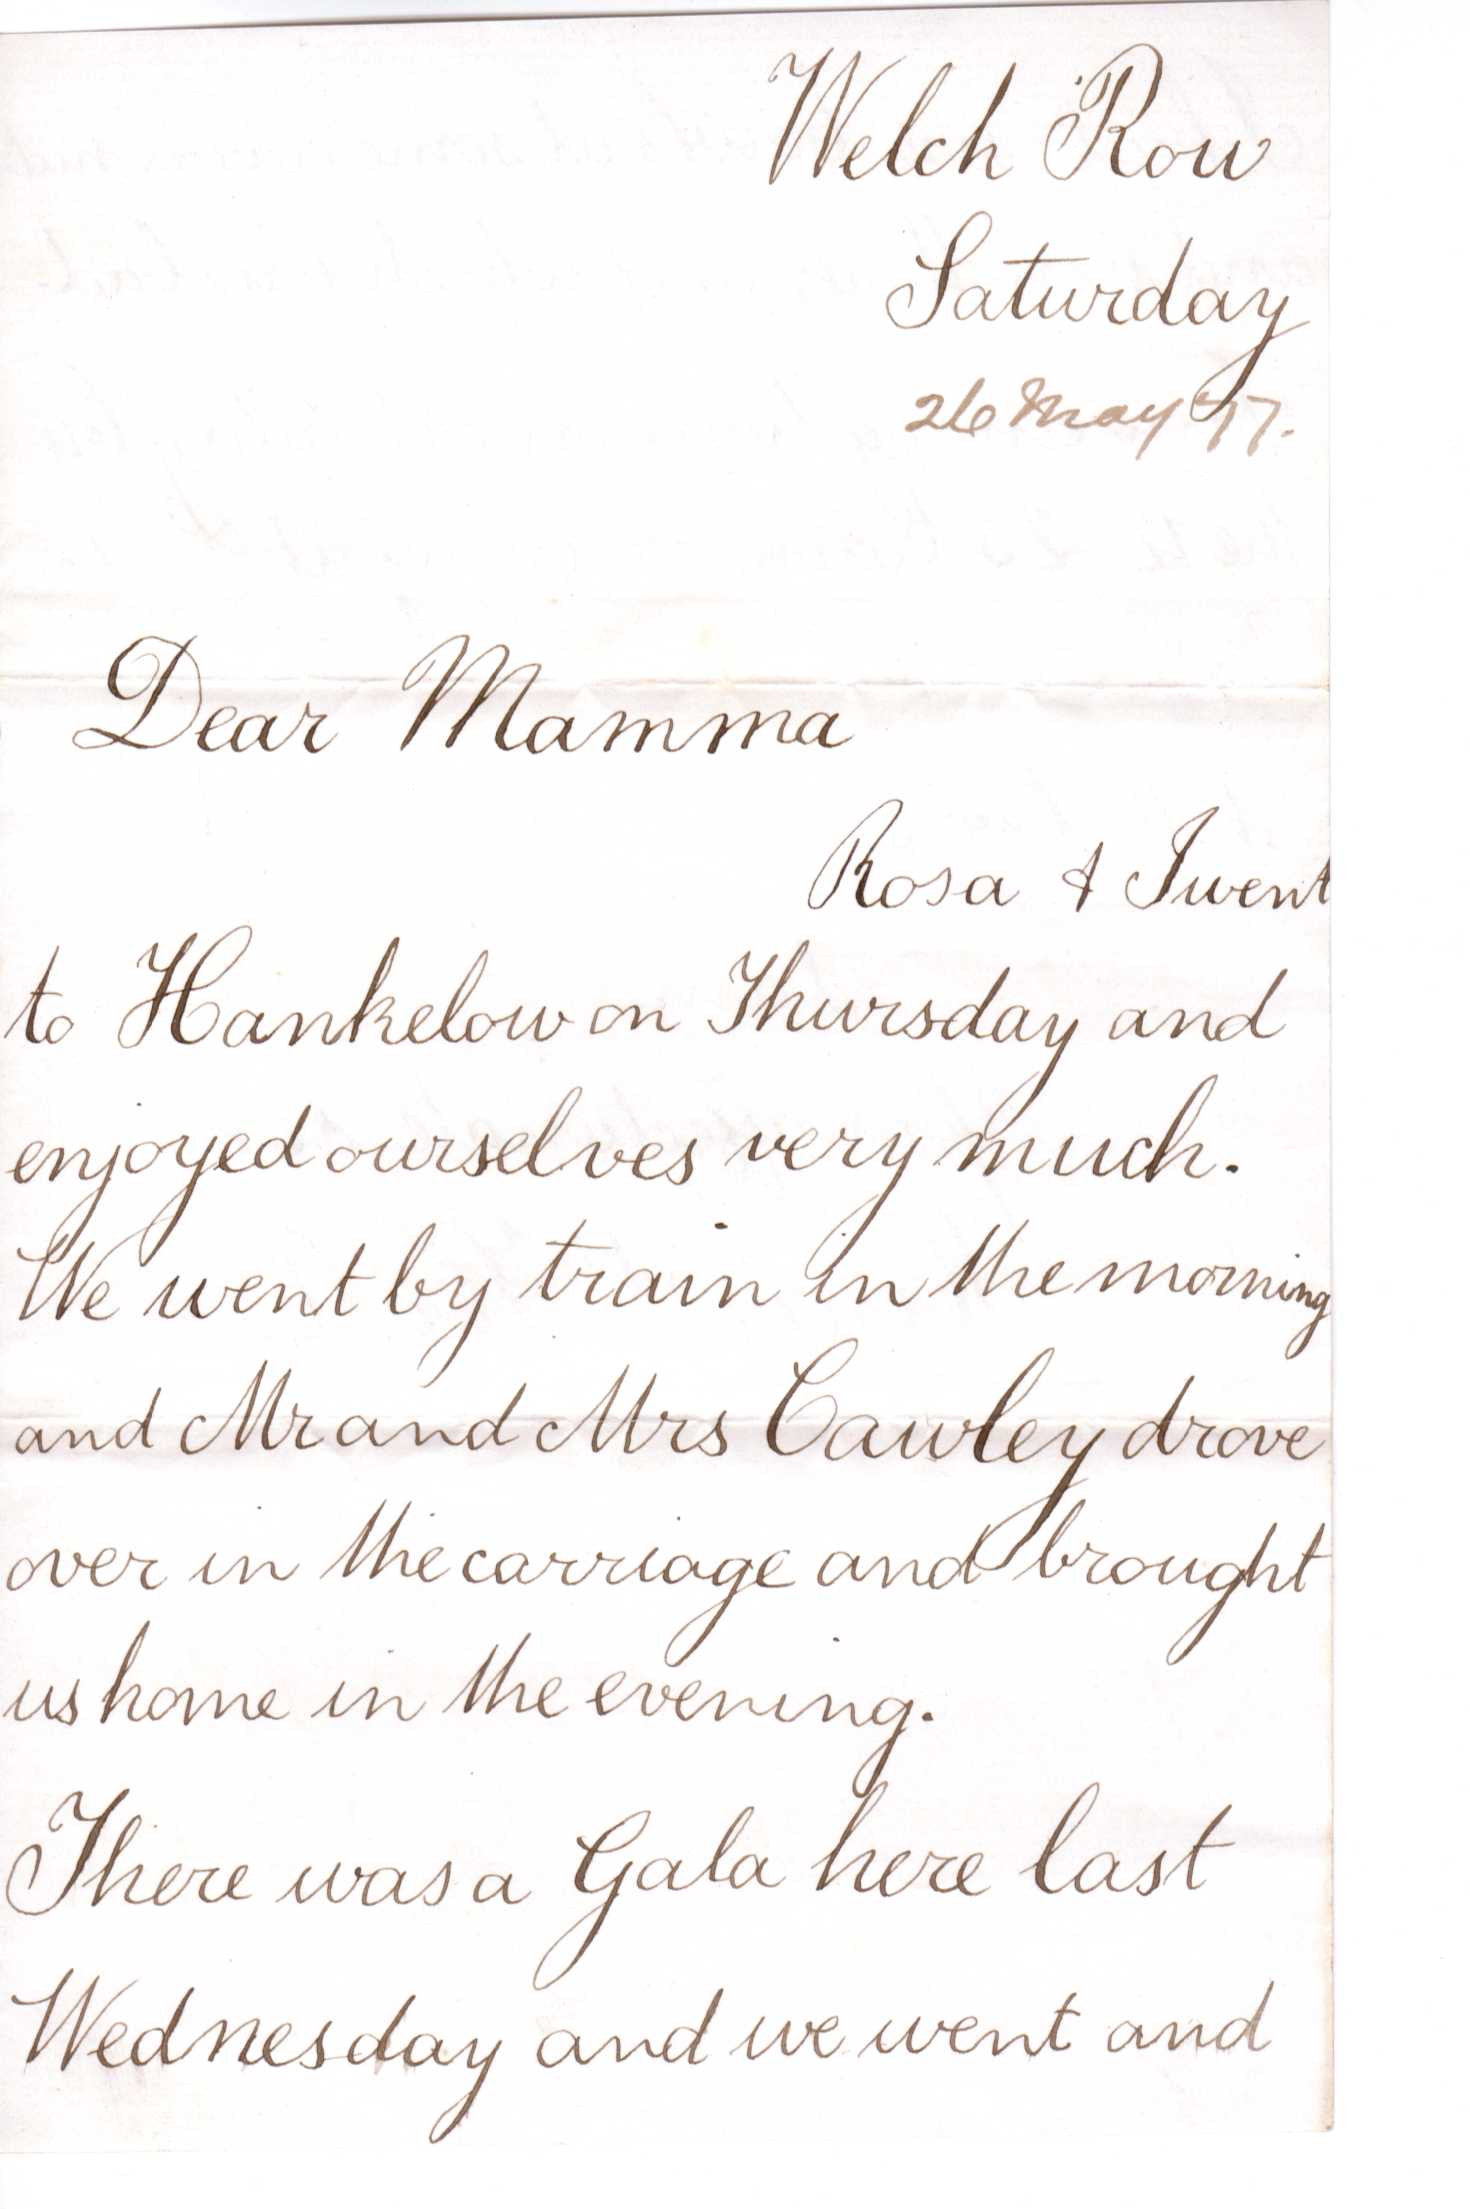 Welch Row
Saturday
26 May '77.
Dear Mamma
Rosa & I went
to Hankelow on Thursday and
enjoyed ourselves very much.
We went by train in the morning
and Mr and Mrs Cawley drove
over in the carriage and brought
us home in the evening.
There was a Gala here last
Wednesday and we went and